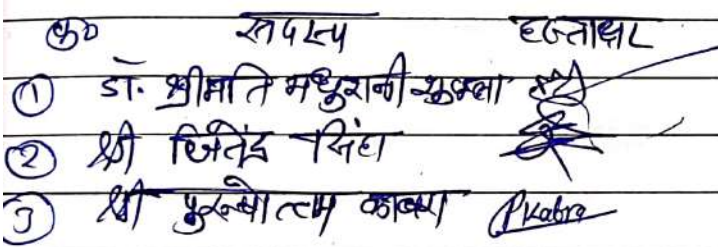 क्र० सदस्य हस्ताक्षर
① डॉ. श्रीमति मधुरानी शुक्ला
② श्री जितेंद्र सिंह
③ श्री पुरुषोत्तम काबरा PKabra